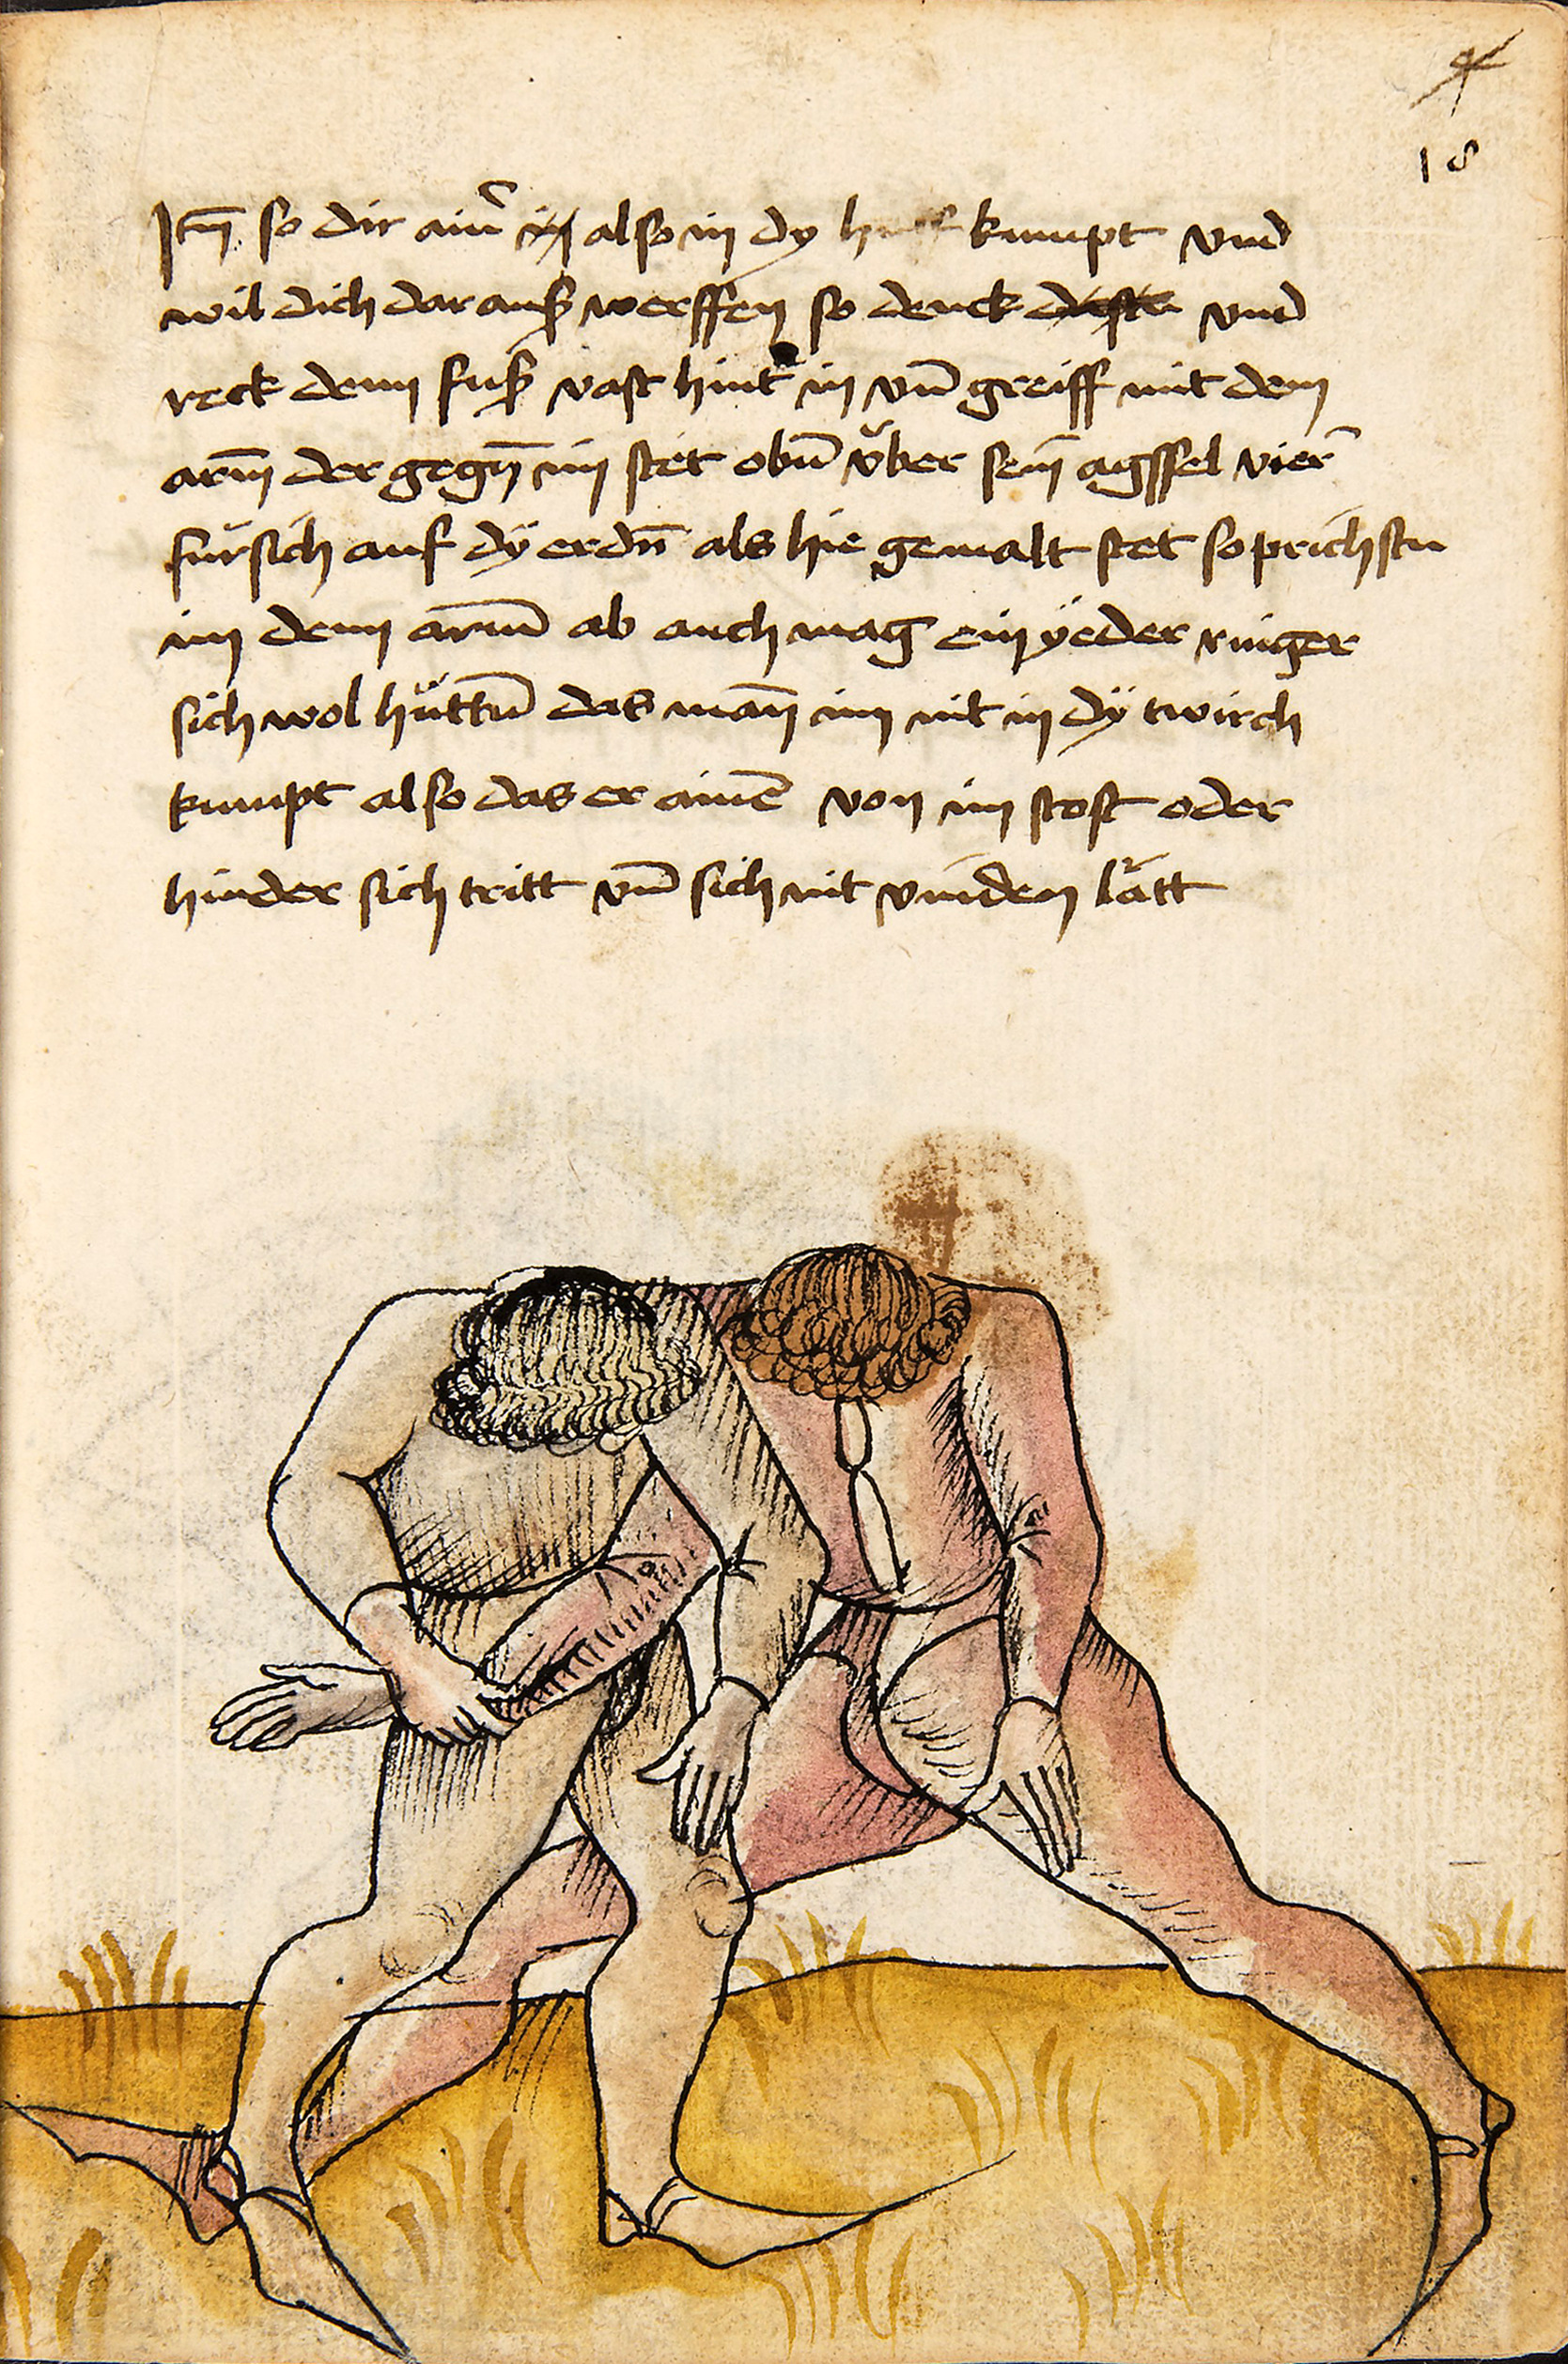 4
18
Itm̄ so dir ainˀ also in dy huff kumpt vnd
wil dich dar auß werffen so denck vnd
reck denn fuß vast hint in vn̄ greiff mit dem
arm̄ der gegn̄ im stet obn̄ v̆ber sein̄ agssel vierˀ
fürsich auf dÿ erdn̄ als hie gemalt stet so prichstu
im denn arm̄ ab auch mag ein ÿeder ringer
sich wol hüttn̄ das man̄ im nit in dÿ twirch
kumpt also das er ainē von im stost oder
hinder sich tritt vn̄ sich nit vinden lätt